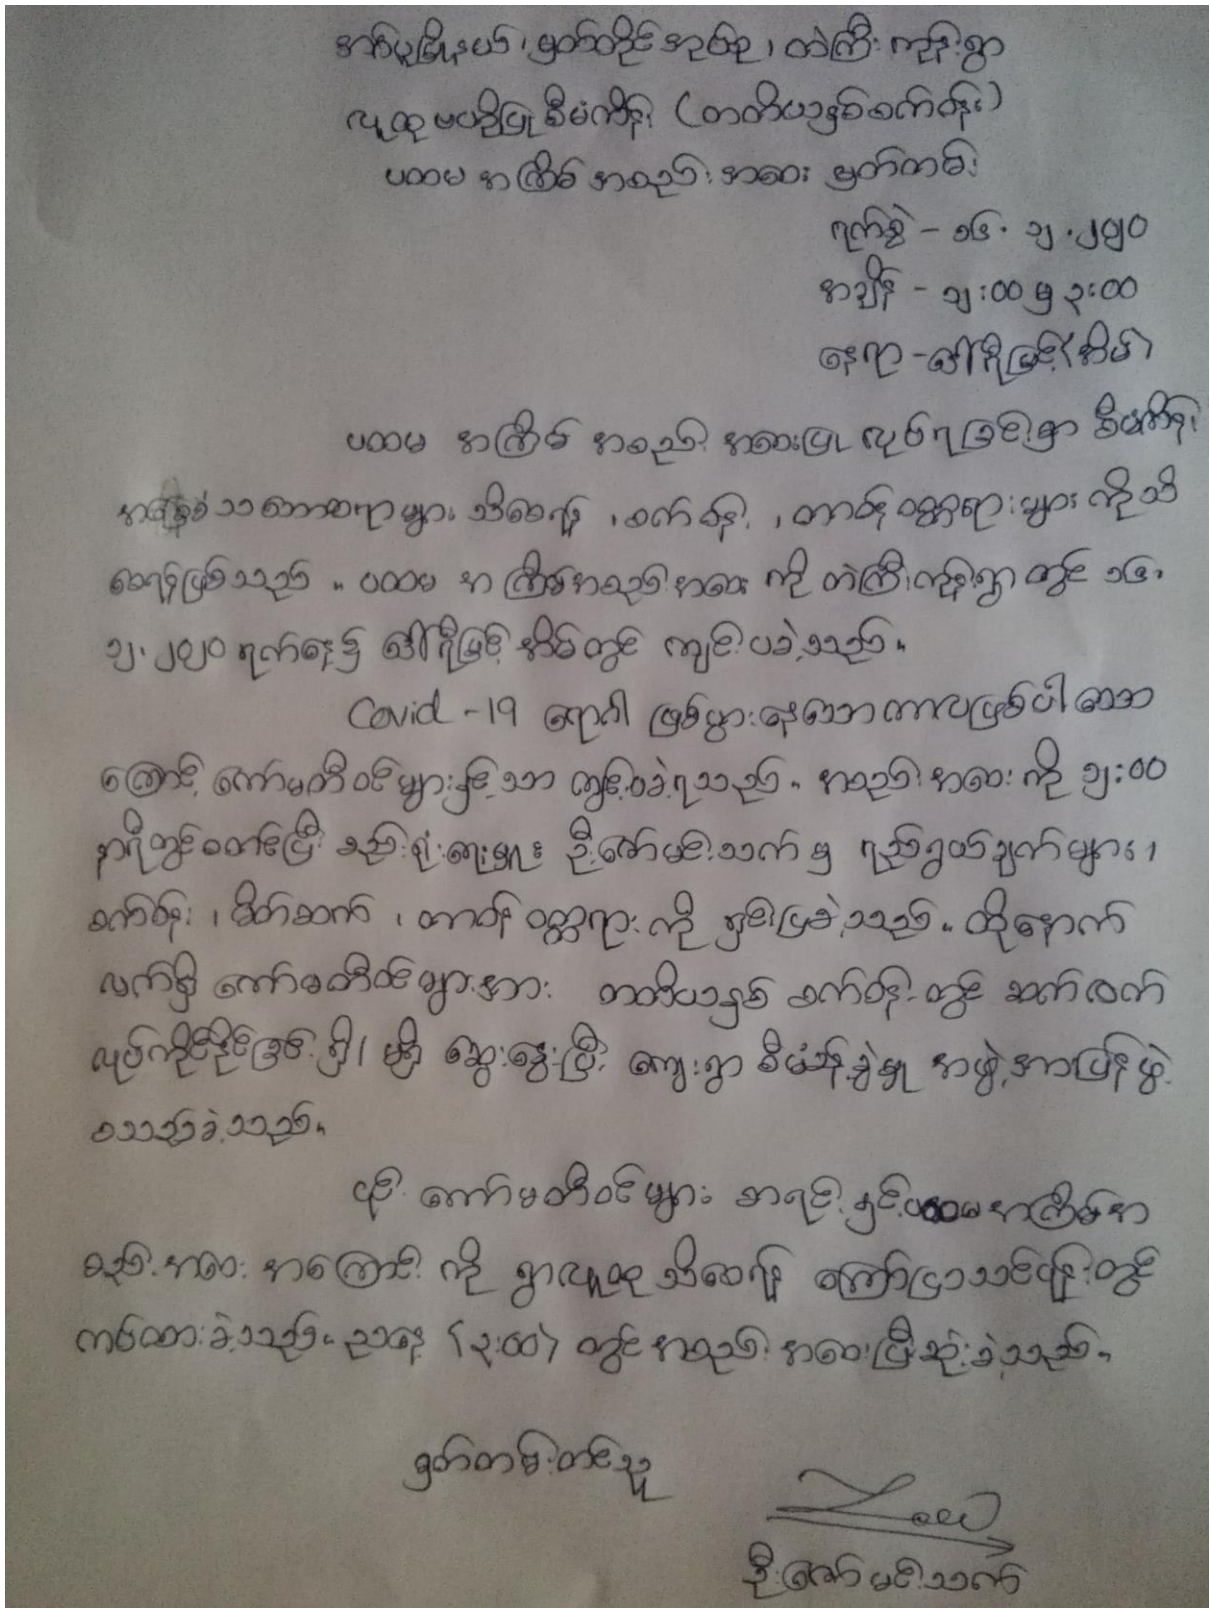 အမ်ပူမြို့နယ်၊ မြတ်တိုင်အုပ်စု၊ တဲကြီးကုန်းရွာ
လူထုဗဟိုပြုစီမံကိန်း (တတိယနှစ်စက်ဝန်း)
ပထမ အကြိမ် အစည်းအဝေး မှတ်တမ်း
ရက်စွဲ - ၁၆.၁၂.၂၀၂၀
အချိန် - ၁၂:၀၀ မှ ၃:၀၀
နေရာ - ဒေါ်ရီမြင့်(အိမ်)
ပထမ အကြိမ် အစည်းအဝေးပြုလုပ်ရခြင်းမှာ စီမံကိန်း
အနှစ်သာရများ သိစေရန်၊ စက်ဝန်း၊ တာဝန်ဝတ္တရားများကိုသိ
စေရန်ဖြစ်သည်။ ပထမ အကြိမ်အစည်းအဝေး ကို တဲကြီးကုန်းရွာတွင် ၁၆.
၁၂.၂၀၂၀ ရက်နေ့၌ ဒေါ်ရီမြင့်အိမ်တွင် ကျင်းပခဲ့သည်။
Covid -19 ရောဂါ ဖြစ်ပွားနေသောကာလဖြစ်ပါသော
ကြောင့် ကော်မတီဝင်များနှင့်သာ ကျင်းပခဲ့ရသည်။ အစည်းအဝေးကို ၁၂:၀၀
နာရီတွင်စတင်ပြီး စည်းရုံးရေးမှူး ဦးဇော်မင်းသက်မှ ရည်ရွယ်ချက်များ၊
စက်ဝန်း၊ မိတ်ဆက်၊ တာဝန် ဝတ္တရား ကို ရှင်းပြခဲ့သည်။ ထို့နောက်
လက်ရှိ ကော်မတီဝင်များအား တတိယနှစ် စက်ဝန်းတွင် ဆက်လက်
လုပ်ကိုင်နိုင်ခြင်း ရှိ/မရှိ ဆွေးနွေးပြီး ကျေးရွာ စီမံခန့်ခွဲမှု အဖွဲ့အားပြန်ဖွဲ့
စည်းခဲ့သည်။
၎င်း ကော်မတီဝင်များ စာရင်းနှင့်ပထမအကြိမ်အ
စည်းအဝေး အကြောင်း ကို ရွာလူထု သိစေရန် ကြော်ငြာသင်ပုန်းတွင်
ကပ်ထားခဲ့သည်။ ညနေ (၃:၀၀) တွင် အစည်းအဝေးပြီးဆုံးခဲ့သည်။
မှတ်တမ်းတင်သူ
ဦးဇော်မင်းသက်